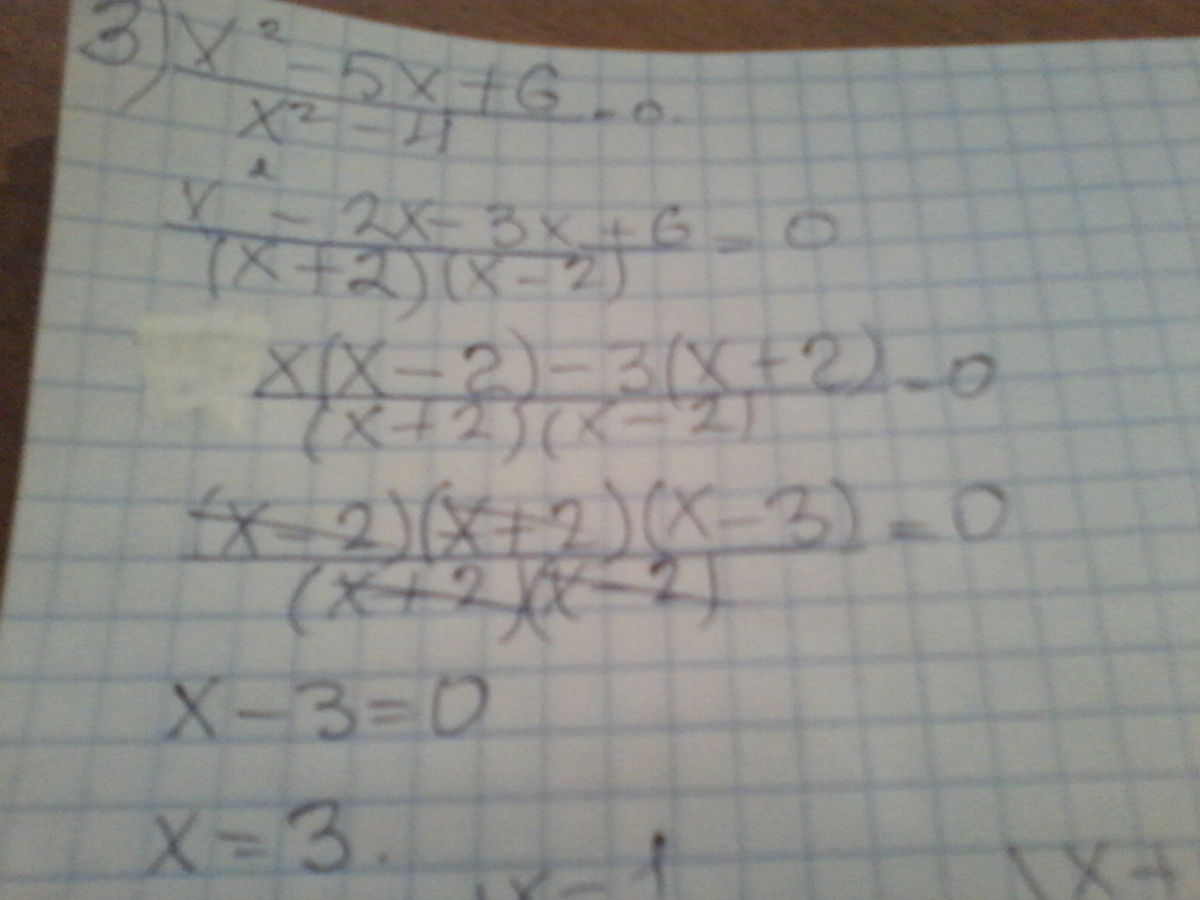 3) x² - 5x + 6 / x² - 4 = 0.
x² - 2x - 3x + 6 / (x + 2)(x - 2) = 0
x(x - 2) - 3(x + 2) / (x + 2)(x - 2) = 0
(x - 2)(x + 2)(x - 3) / (x + 2)(x - 2) = 0
x - 3 = 0
x = 3.